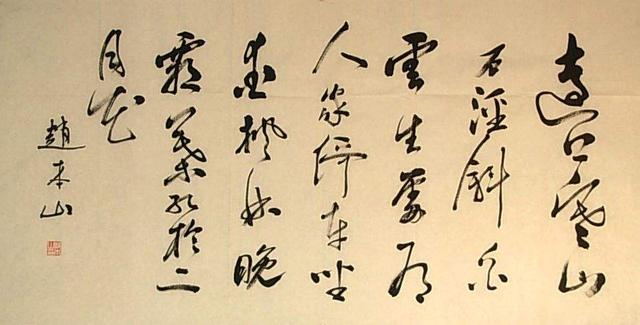 遠上寒山
石徑斜白
雲生處有
人家停車坐
愛楓林晚
霜葉紅於二
月花
趙本山